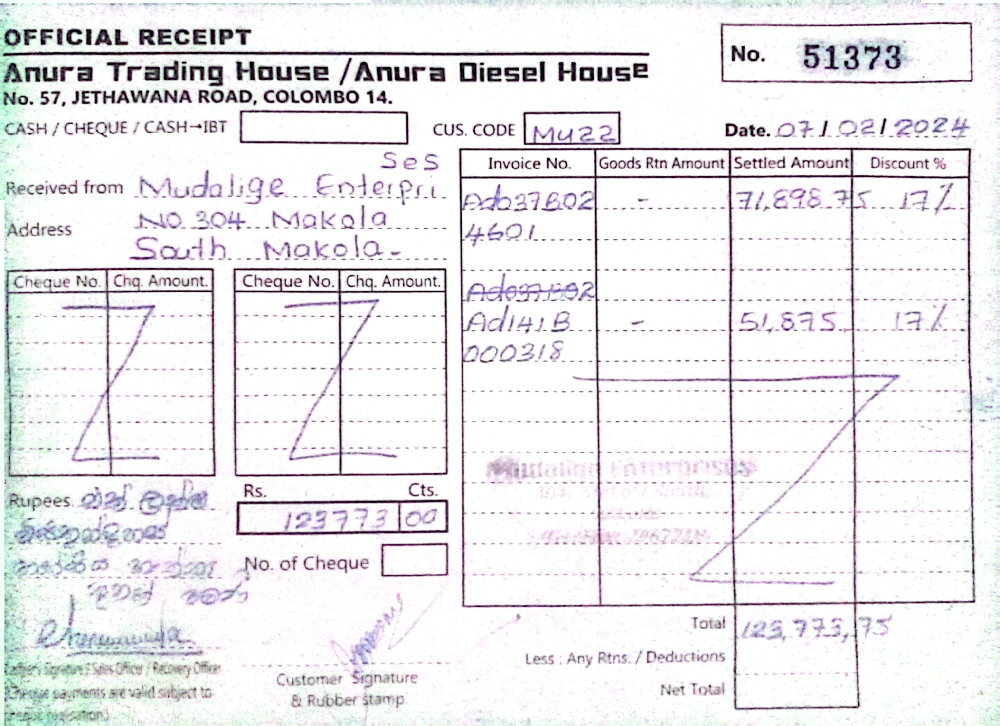 OFFICIAL RECEIPT
Anura Trading House /Anura Diesel House
No. 57, JETHAWANA ROAD, COLOMBO 14.
No. 51373
CASH / CHEQUE / CASH→IBT
CUS. CODE Mu22
Date. 07/02/2024
Received from Mudalige Enterprises
Address No 304 Makola
South Makola-
Cheque No. Chq. Amount. Cheque No. Chq. Amount.
Invoice No. Goods Rtn Amount Settled Amount Discount %
Ad037B02 - 71,898.75 17%
4601
Ad037B02
Ad141B - 51,875 17%
000318
Mudalige Enterprises
Rupees එක් ලක්ෂ
Rs. Cts.
123773 00
No. of Cheque
Total 123,773,75
Less : Any Rtns. / Deductions
Net Total
Customer Signature
& Rubber stamp
Cashier's Signature / Sales Officer / Recovery Officer
Cheque payments are valid subject to